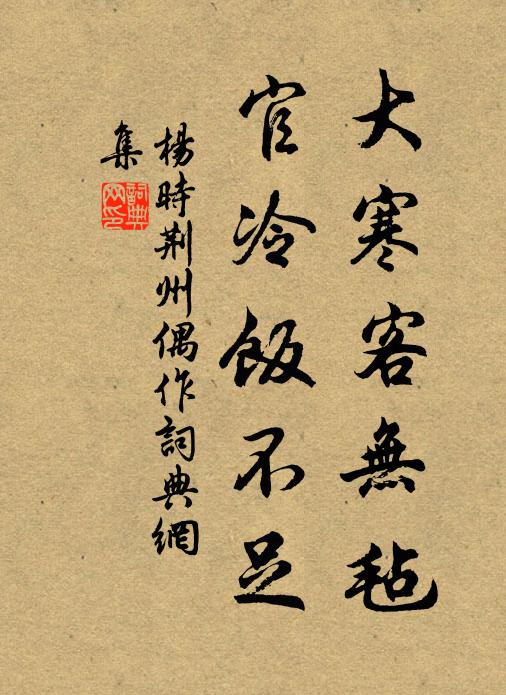 大寒客無毡
官冷飯不足
楊時荆州偶作詞典網
集
詞典網印